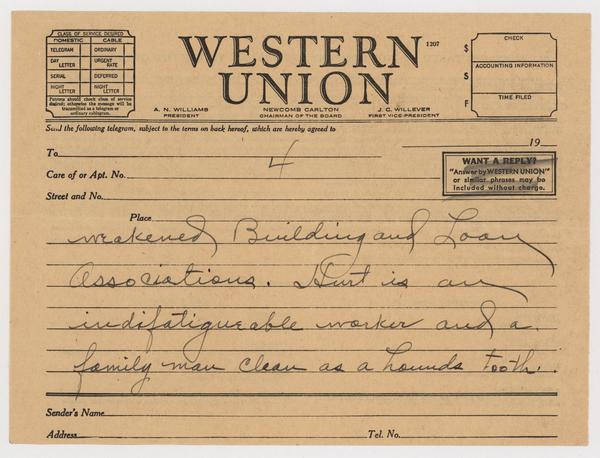 CLASS OF SERVICE DESIRED
DOMESTIC CABLE
TELEGRAM ORDINARY
DAY LETTER URGENT RATE
SERIAL DEFERRED
NIGHT LETTER NIGHT LETTER
Patrons should check class of service desired; otherwise the message will be transmitted as a telegram or ordinary cablegram.
WESTERN
UNION
1207
A. N. WILLIAMS
PRESIDENT
NEWCOMB CARLTON
CHAIRMAN OF THE BOARD
J. C. WILLEVER
FIRST VICE-PRESIDENT
$
$
F
CHECK
ACCOUNTING INFORMATION
TIME FILED
Send the following telegram, subject to the terms on back hereof, which are hereby agreed to
19
To
4
Care of or Apt. No.
Street and No.
Place
WANT A REPLY?
"Answer by WESTERN UNION"
or similar phrases may be
included without charge.
weakened Building and Loan
Associations. Hurt is an
indifatigueable worker and a
family man clean as a hounds tooth.
Sender's Name
Address Tel. No.